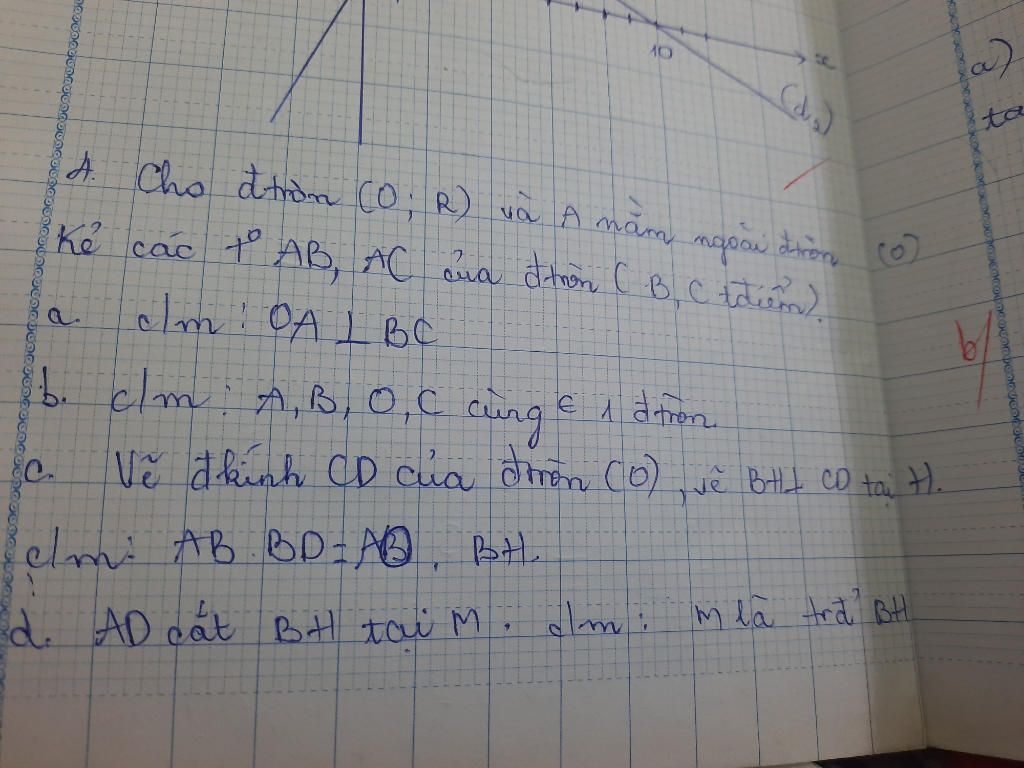 10
x
(d₂)
a)
ta
4. Cho đtròn (O; R) và A nằm ngoài đtròn (O)
Kẻ các t° AB, AC của đtròn (B, C tđiểm).
a. c/m: OA ⊥ BC
b. c/m: A, B, O, C cùng ∈ 1 đtròn
b/
c. Vẽ đkính CD của đtròn (O), vẽ BH ⊥ CD tại H.
c/m: AB. BD = AO. BH.
d. AD cắt BH tại M. c/m: M là trđ' BH